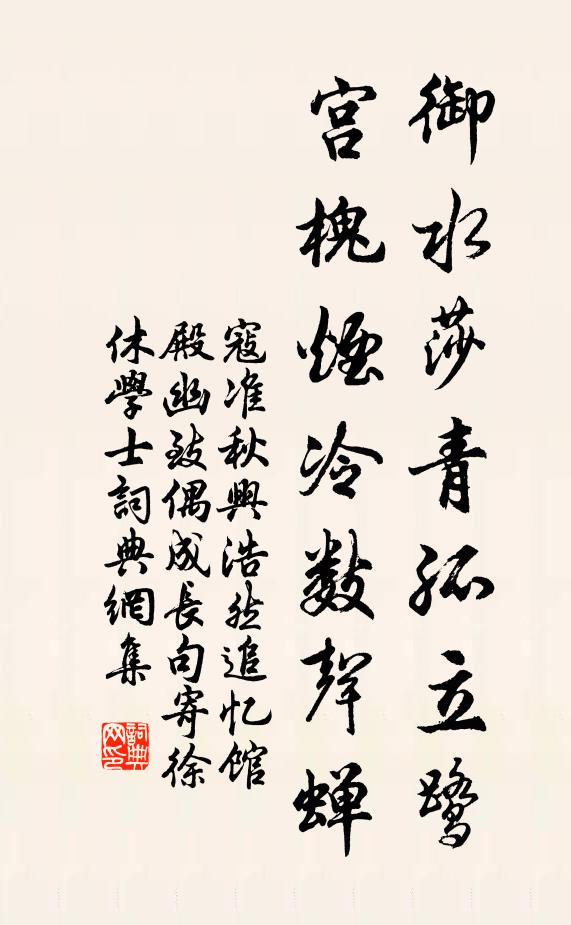 御水莎青孤立鹭
宫槐煙冷数聲蝉
寇准秋興浩然追忆馆
殿幽致偶成長句寄徐
休學士詞典網集
詞典网印